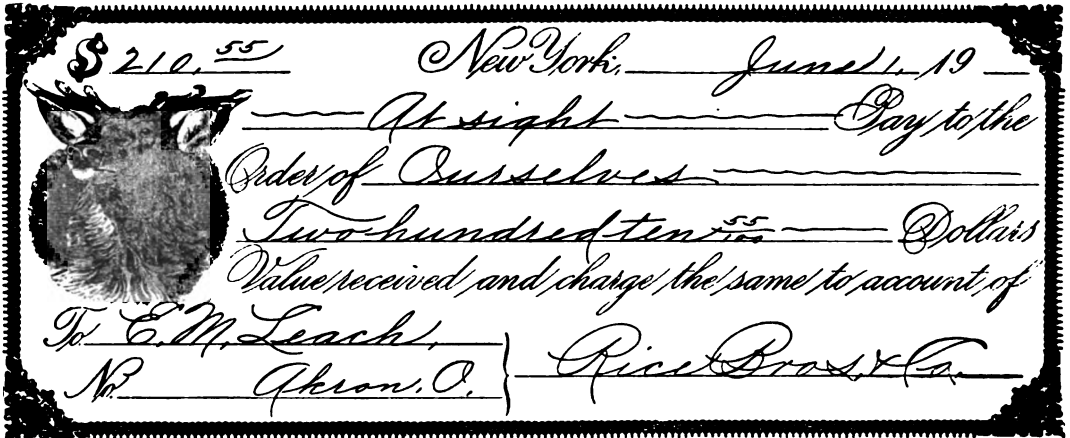 $ 210.55 New York, June 1, 19
At sight Pay to the
Order of Ourselves
Two hundred ten 55/100 Dollars
Value received and charge the same to account of
To E. M. Leach,
No. Akron, O. Rice Bros. & Co.